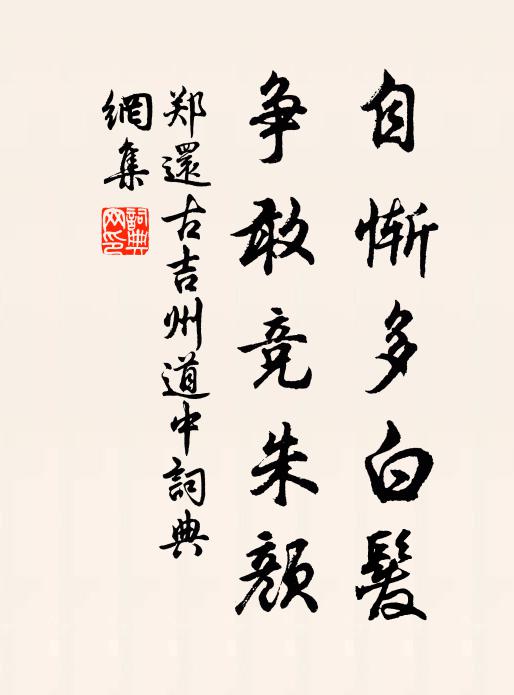 自惭多白髮
争敢竞朱颜
郑還古吉州道中詞典
網集
詞典网印